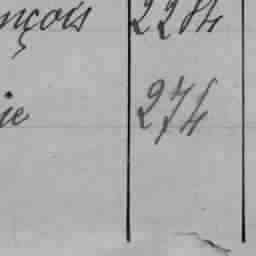 nçois 2284
ie 274